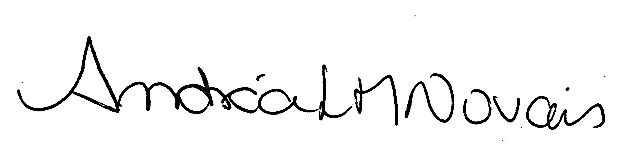 Andréa LM Novais